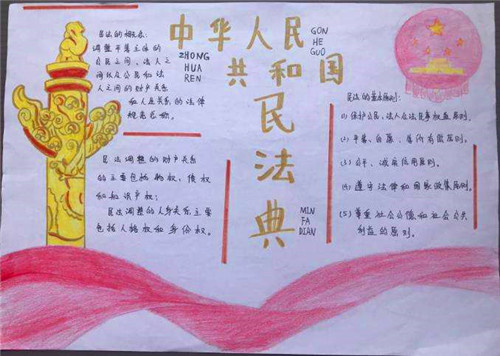 中华人民
共和国
民法典
ZHONG
HUA
REN
GON
HE
GUO
MIN
FA
DIAN
民法的概念:
调整平等主体的
自然人之间、法人之
间以及公民和法
人之间的财产关系
和人身关系的法律
规范总称。
民法调整的财产关系
的主要包括物权、债权
和知识产权;
民法调整的人身关系主要
包括人格权和身份权。
民法的基本原则:
(1) 保护公民、法人合法民事权益原则。
(2) 平等、自愿、
原则。
(3) 公平、诚实信用原则。
(4) 遵守法律和国家政策原则。
(5) 尊重社会公德和社会公共
利益的原则。